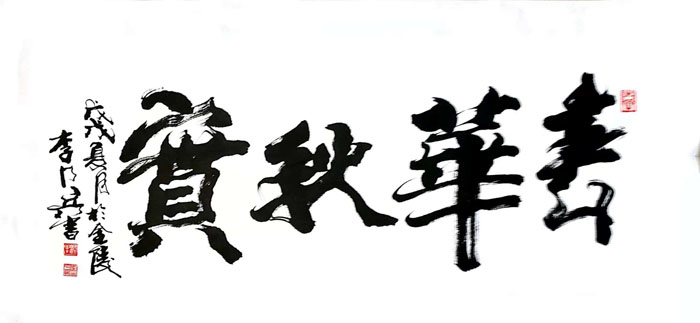 春華秋實
戊戌夏月於金陵
李書